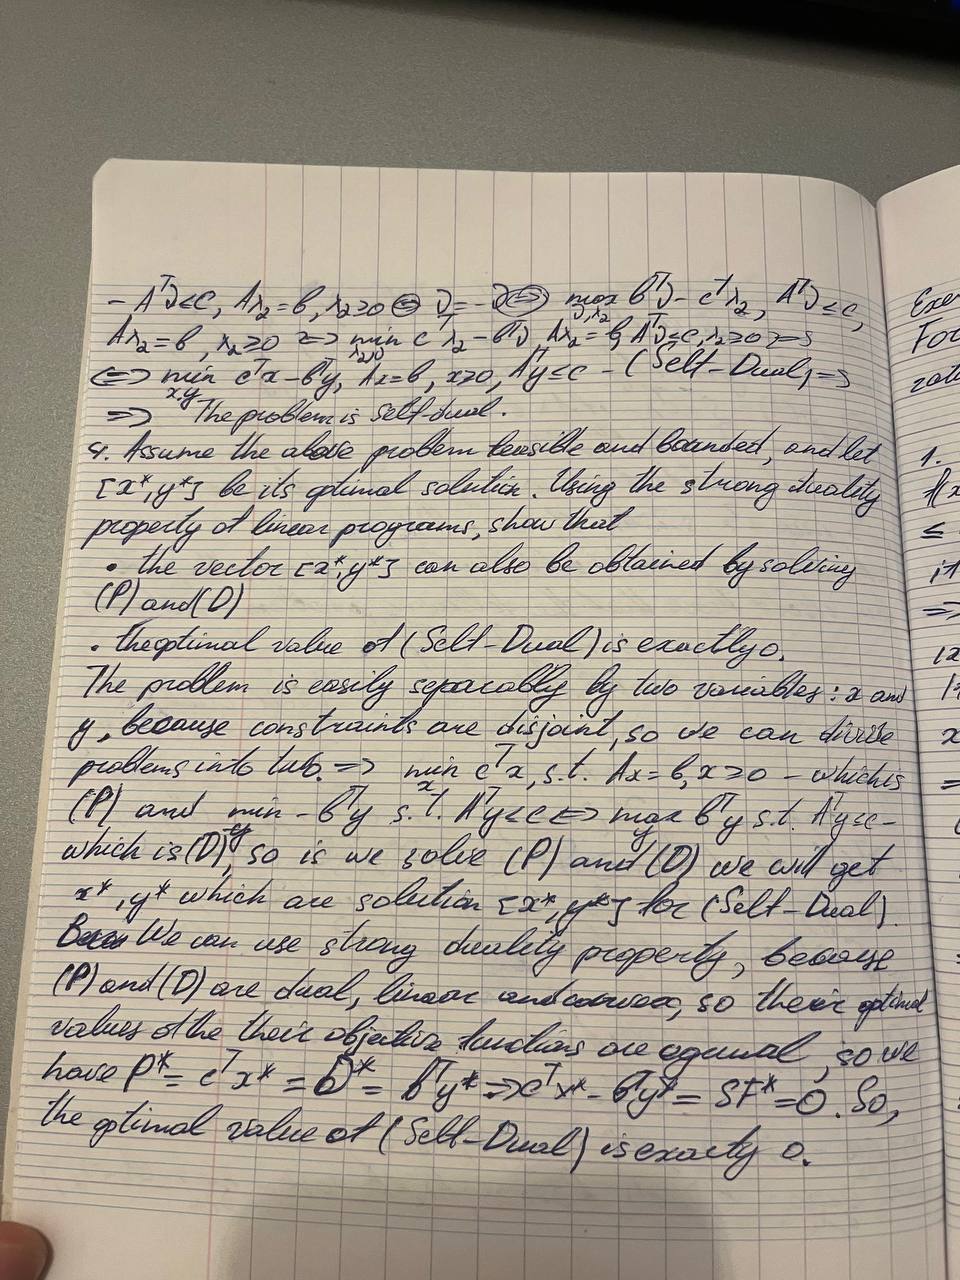 - Aᵀν ≤ c, Aλ₂ = b, λ₂ ≥ 0 ⇔ ν = -ν ⇔ max ν,λ₂ bᵀν - cᵀλ₂, Aᵀν ≤ c,
Aλ₂ = b, λ₂ ≥ 0 ⇔ min cᵀλ₂ - bᵀν, Aλ₂ = b, Aᵀν ≤ c, λ₂ ≥ 0 ⇔
⇔ min x,y cᵀx - bᵀy, Ax = b, x ≥ 0, Aᵀy ≤ c - (Self-Dual) ⇒
⇒ The problem is self-dual.
4. Assume the above problem feasible and bounded, and let
[x*, y*] be its optimal solution. Using the strong duality
property of linear programs, show that
• the vector [x*, y*] can also be obtained by solving
(P) and (D)
• the optimal value of (Self-Dual) is exactly 0.
The problem is easily separably by two variables: x and
y, because constraints are disjoint, so we can divide
problems into two. ⇒ min x cᵀx, s.t. Ax = b, x ≥ 0 - which is
(P) and min y - bᵀy s.t. Aᵀy ≤ c ⇔ max y bᵀy s.t. Aᵀy ≤ c -
which is (D), so is we solve (P) and (D) we will get
x*, y* which are solution [x*, y*] for (Self-Dual).
We can use strong duality property, because
(P) and (D) are dual, linear and convex, so their optimal
values of the their objective functions are equal, so we
have P* = cᵀx* = D* = bᵀy* ⇒ cᵀx* - bᵀy* = SF* = 0. So,
the optimal value of (Self-Dual) is exacty 0.
Exer
For
rate
1.
f(x
≤
it
⇒
x